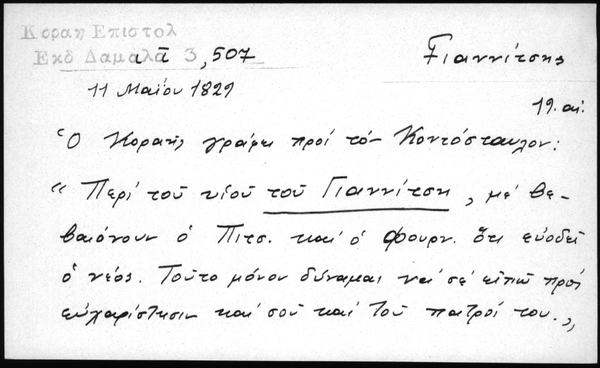 Κοραη Επιστολ
Εκδ Δαμαλα τ. 3, 507
Γιαννίτσης
11 Μαΐου 1829
19. αι.
Ὁ Κοραής γράφει πρός τόν Κοντόσταυλον:
"Περί τοῦ υἱοῦ τοῦ Γιαννίτση, μέ βε-
βαιόνουν ὁ Πιτσ. καί ὁ Φουρν. ὅτι εὐοδεῖ
ὁ νέος. Τοῦτο μόνον δύναμαι νά σέ εἰπῶ πρός
εὐχαρίστησιν καί σοῦ καί τοῦ πατρός του.„